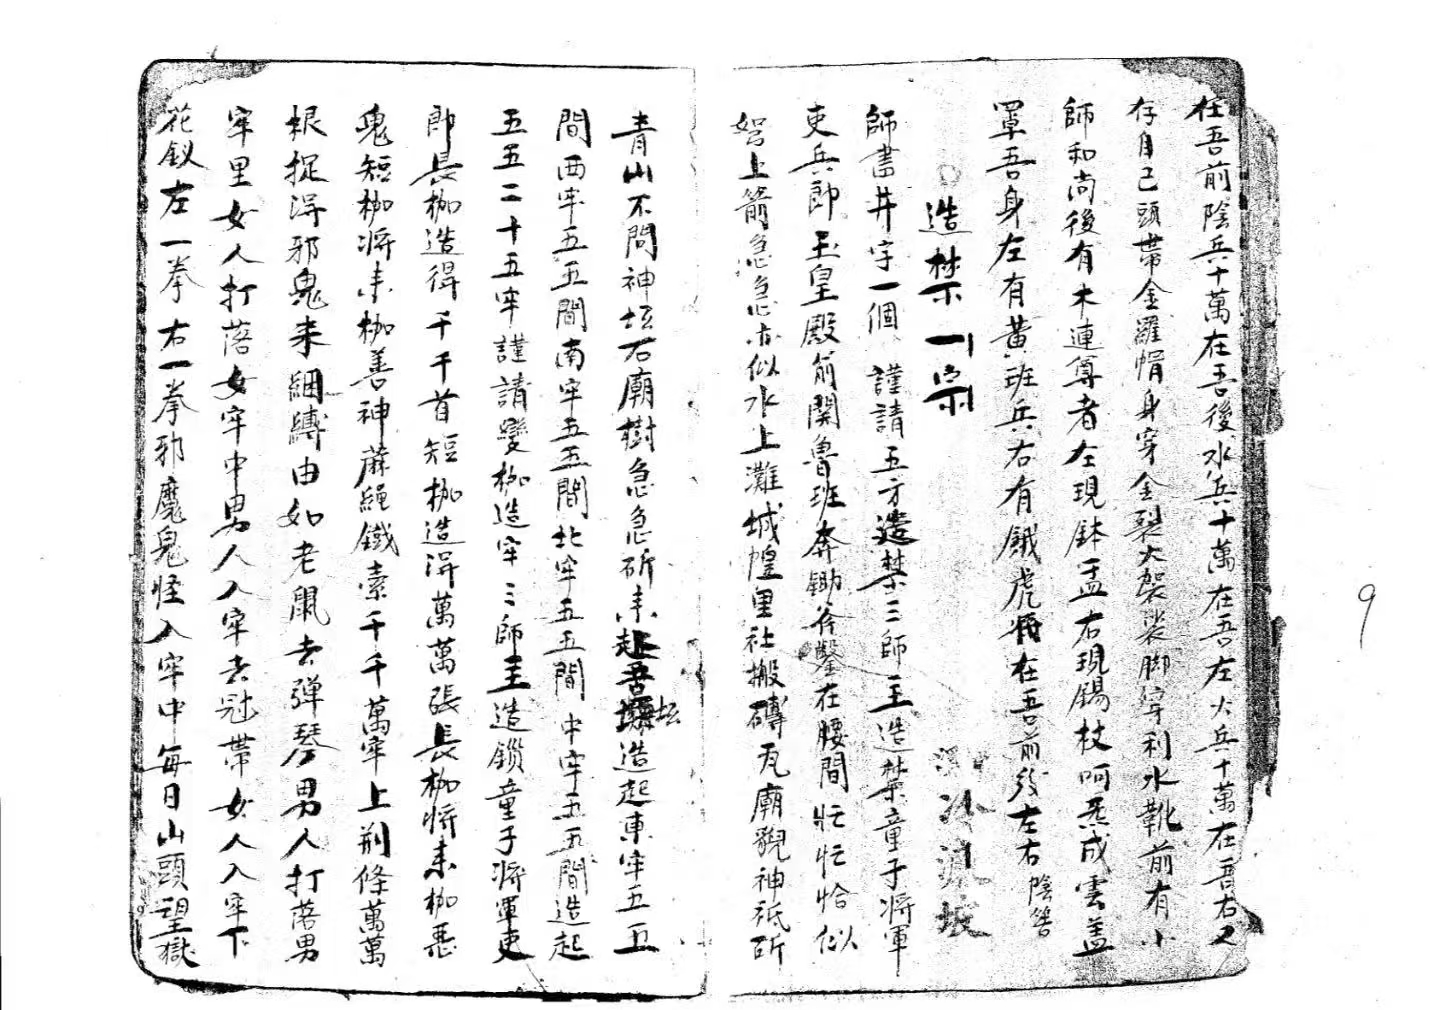 在吾前陰兵十萬在吾後水兵十萬在吾左火兵十萬在吾右又
存自己頭帶金羅帽身穿金裂大袈裟脚穿利水靴前有小
師和尚後有木連尊者左現鉢盂右現錫杖呵炁成雲盖
罩吾身左有黄班兵右有餓虎將在吾前後左右陰答
造禁一宗
師書井字一個謹請五方造禁三師三主造禁童子將軍
吏兵郎玉皇殿前関魯班奔鋤斧鑿在腰間忙忙恰似
上箭急急亦似水上灘城惶里社搬磚瓦廟觀神祇斫
青山不問神坛石廟樹急急斫來起吾坛造起東牢五五
間西牢五五間南牢五五間北牢五五間中牢五五間造起
五五二十五牢謹請變枷造牢三師主造鎖童子將軍吏
郎長枷造得千千首短枷造得萬萬張長枷將來枷惡
鬼短枷將來枷善神蔴繩鐵索千千萬牢上荆條萬萬
根捉得邪鬼来綑縛由如老鼠去弹琴男人打落男
牢里女人打落女牢中男人入牢去冠帶女人入牢下
花釵左一拳右一拳邪魔鬼怪入牢中每日山頭望獄
9